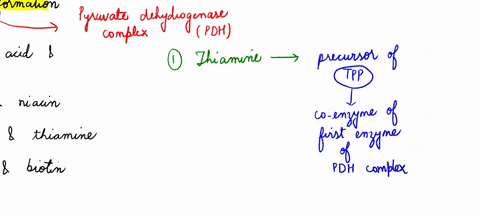 formation
Pyruvate dehydrogenase
complex (PDH)
acid &
① Thiamine → precursor of
TPP
niacin
co-enzyme of
& thiamine
first enzyme
of
& biotin
PDH complex